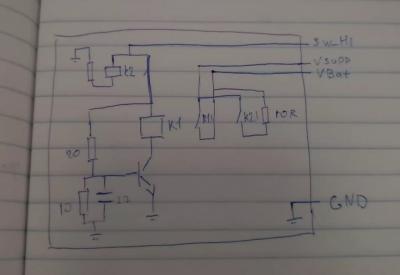 SW_HI
VSUPP
VBat
K2
K1
K21
POR
20
10
GND